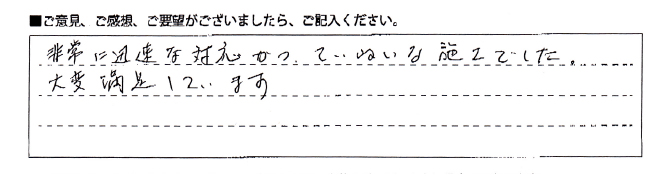 ■ご意見、ご感想、ご要望がございましたら、ご記入ください。
非常に迅速な対応かつ、ていねいな施工でした。
大変満足しています